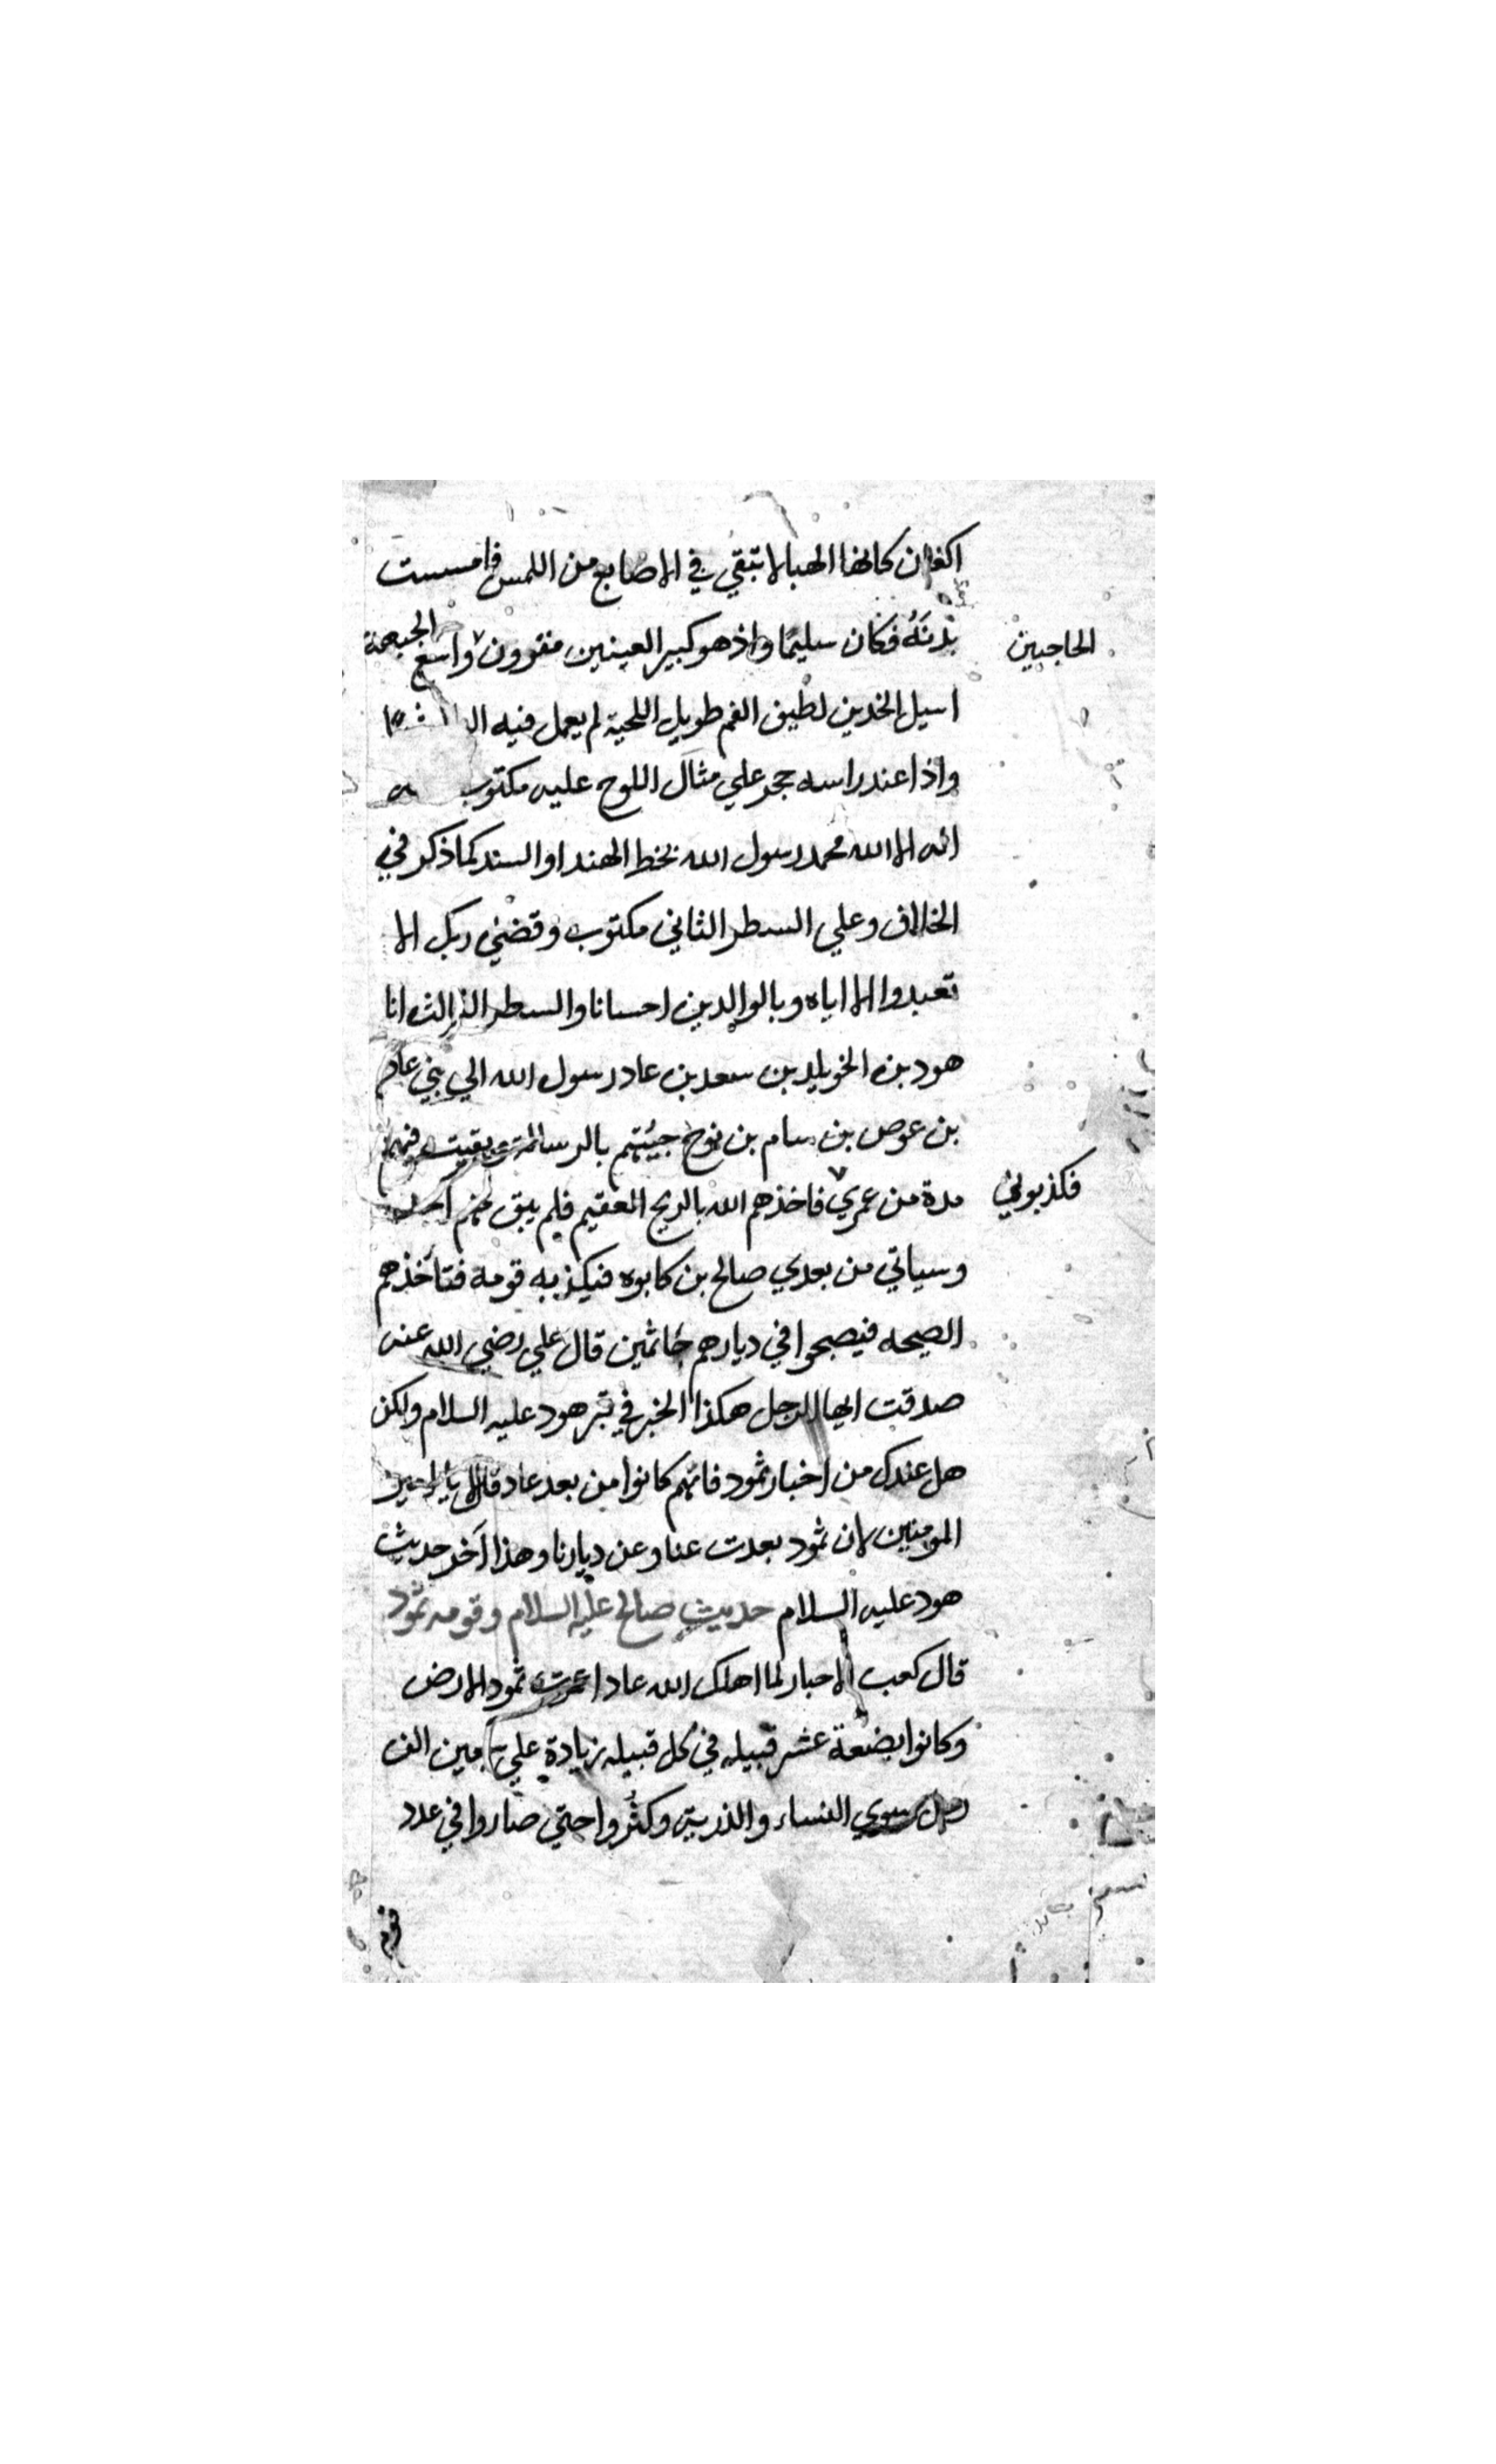 اكفان كانها الهبا لا تبقي في الاصابع من اللمس فامسست
بدنَهُ فكان سليمًا واذ هو كبير العينين مقرون واسع الجبهة
الحاجبين
اسيل الخدين لطيف الفم طويل اللحية لم يعمل فيه
واذا عند راسه حجر علي مثال اللوح عليه مكتوب
اله الا الله محمد رسول الله بخط الهند او السند كما ذكر في
الخلاف وعلي السطر الثاني مكتوب وقضي ربك الا
تعبدوا الا اياه وبالوالدين احسانا والسطر الثالث انا
هود بن الخويلد بن سعد بن عاد رسول الله الي بني عاد
بن عوص بن سام بن نوح جيئتهم بالرسالة وبقيت فيهم
مدة من عمري فاخذهم الله بالريح العقيم فلم يبق منهم احد
فكذبوني
وسياتي من بعدي صالح بن كابوه فيكذبه قومه فتأخذهم
الصيحه فيصبحوا في ديارهم جاثمين قال علي رضي الله عنه
صدقت ايها الرجل هكذا الخبر في قبر هود عليه السلام ولكن
هل عندك من اخبار ثمود فانهم كانوا من بعد عاد قال لا يا امير
المومنين لان ثمود بعدت عنا وعن ديارنا وهذا آخر حديث
هود عليه السلام حديث صالح عليه السلام وقومه ثمود
قال كعب الاحبار لما اهلك الله عادا عمرت ثمود الارض
وكانوا بضعة عشر قبيله في كل قبيله زيادة علي الف
رجل سوي النساء والذرية وكثُروا حتي صاروا في عدد